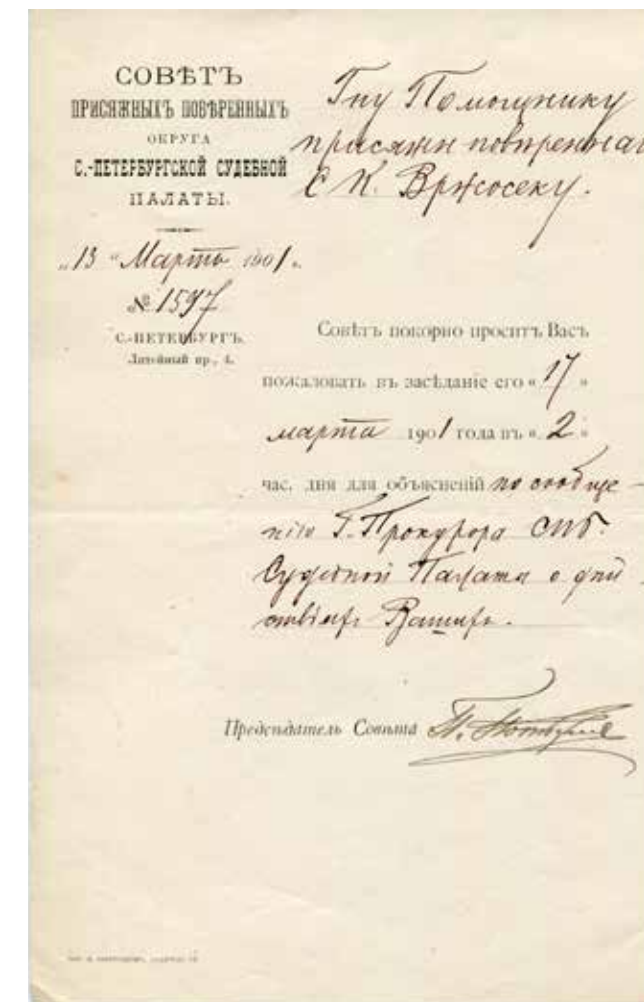 СОВѢТЪ
ПРИСЯЖНЫХЪ ПОВѢРЕННЫХЪ
ОКРУГА
С.-ПЕТЕРБУРГСКОЙ СУДЕБНОЙ
ПАЛАТЫ.
„13 " Марта 1901 г.
№ 1597
С.-ПЕТЕРБУРГЪ.
Литейный пр., 4.
Гну Помощнику
присяжн повѣреннаг
С К. Вржосеку.
Совѣтъ покорно проситъ Васъ
пожаловать въ засѣданіе его « 17 »
марта 1901 года въ « 2 »
час. дня для объясненій по сообще-
нію Г. Прокурора СПб.
Судебной Палаты о дѣй
ствіяхъ Вашихъ.
Предсѣдатель Совѣта